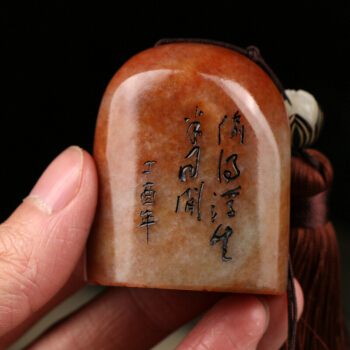 偷得浮生
半日閒
丁酉年